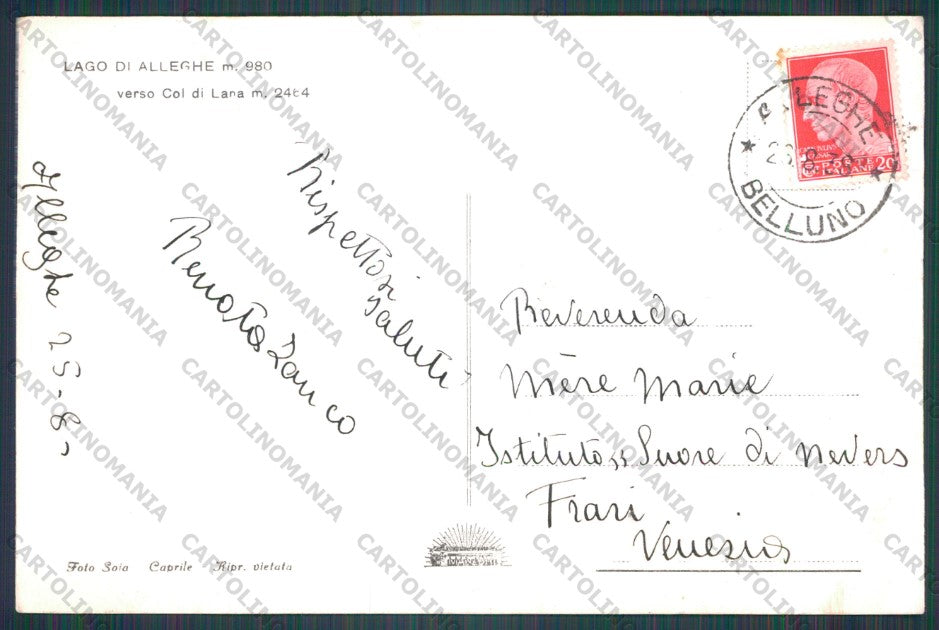 LAGO DI ALLEGHE m. 980
verso Col di Lana m. 2464
ALLEGHE
BELLUNO
POSTE
ITALIANE
20
Alleghe 25-8-
Rispettosi
saluti
Renata Zanco
Reverenda
Mère Marie
Istituto „Suore di Nevers
Frari
Venezia
Foto Soia Caprile Ripr. vietata
CARTOLINOMANIA